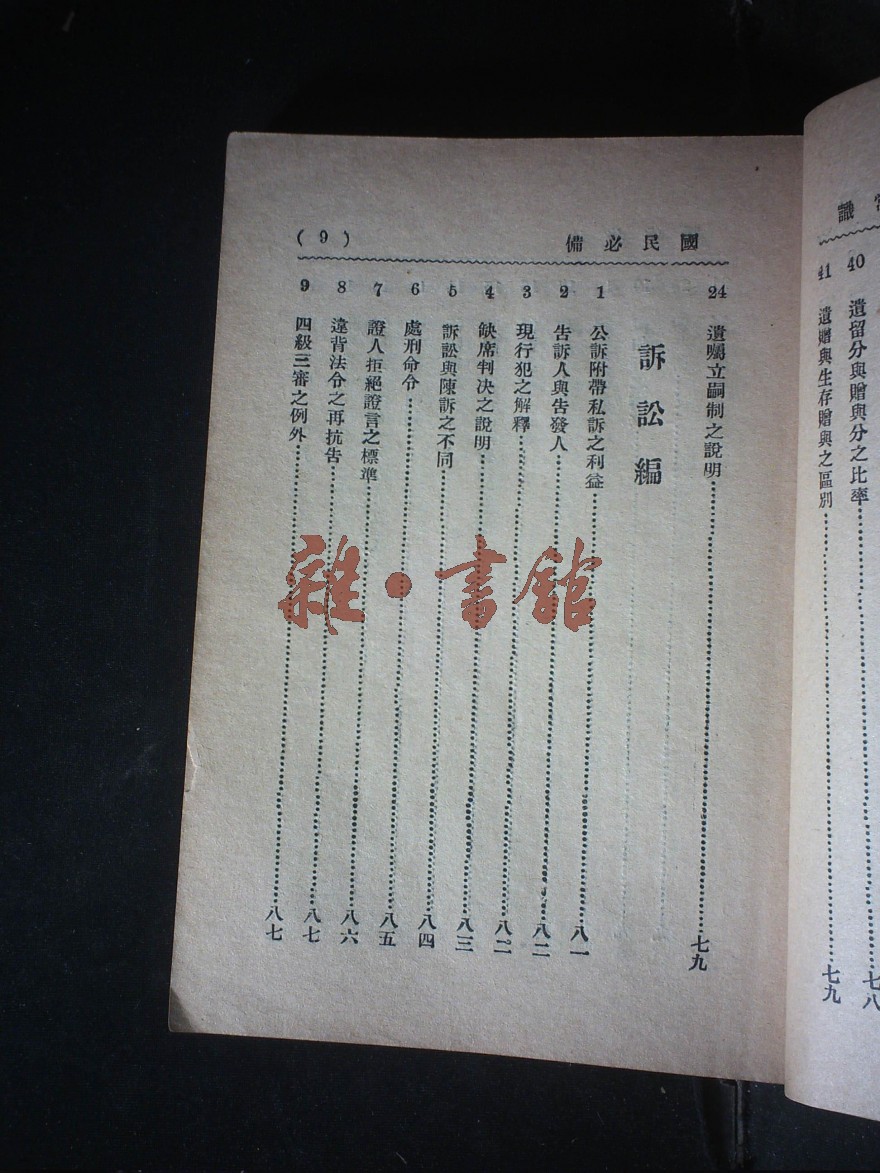 識
40 遺留分與贈與分之比率 七八
41 遺贈與生存贈與之區別 七九
國民必備
(9)
24 遺囑立嗣制之說明 七九
訴訟編
1 公訴附帶私訴之利益 八一
2 告訴人與告發人 八二
3 現行犯之解釋 八二
4 缺席判决之說明 八三
5 訴訟與陳訴之不同 八四
6 處刑命令 八五
7 證人拒絕證言之標準 八六
8 違背法令之再抗告 八七
9 四級三審之例外 八七
雜•書館